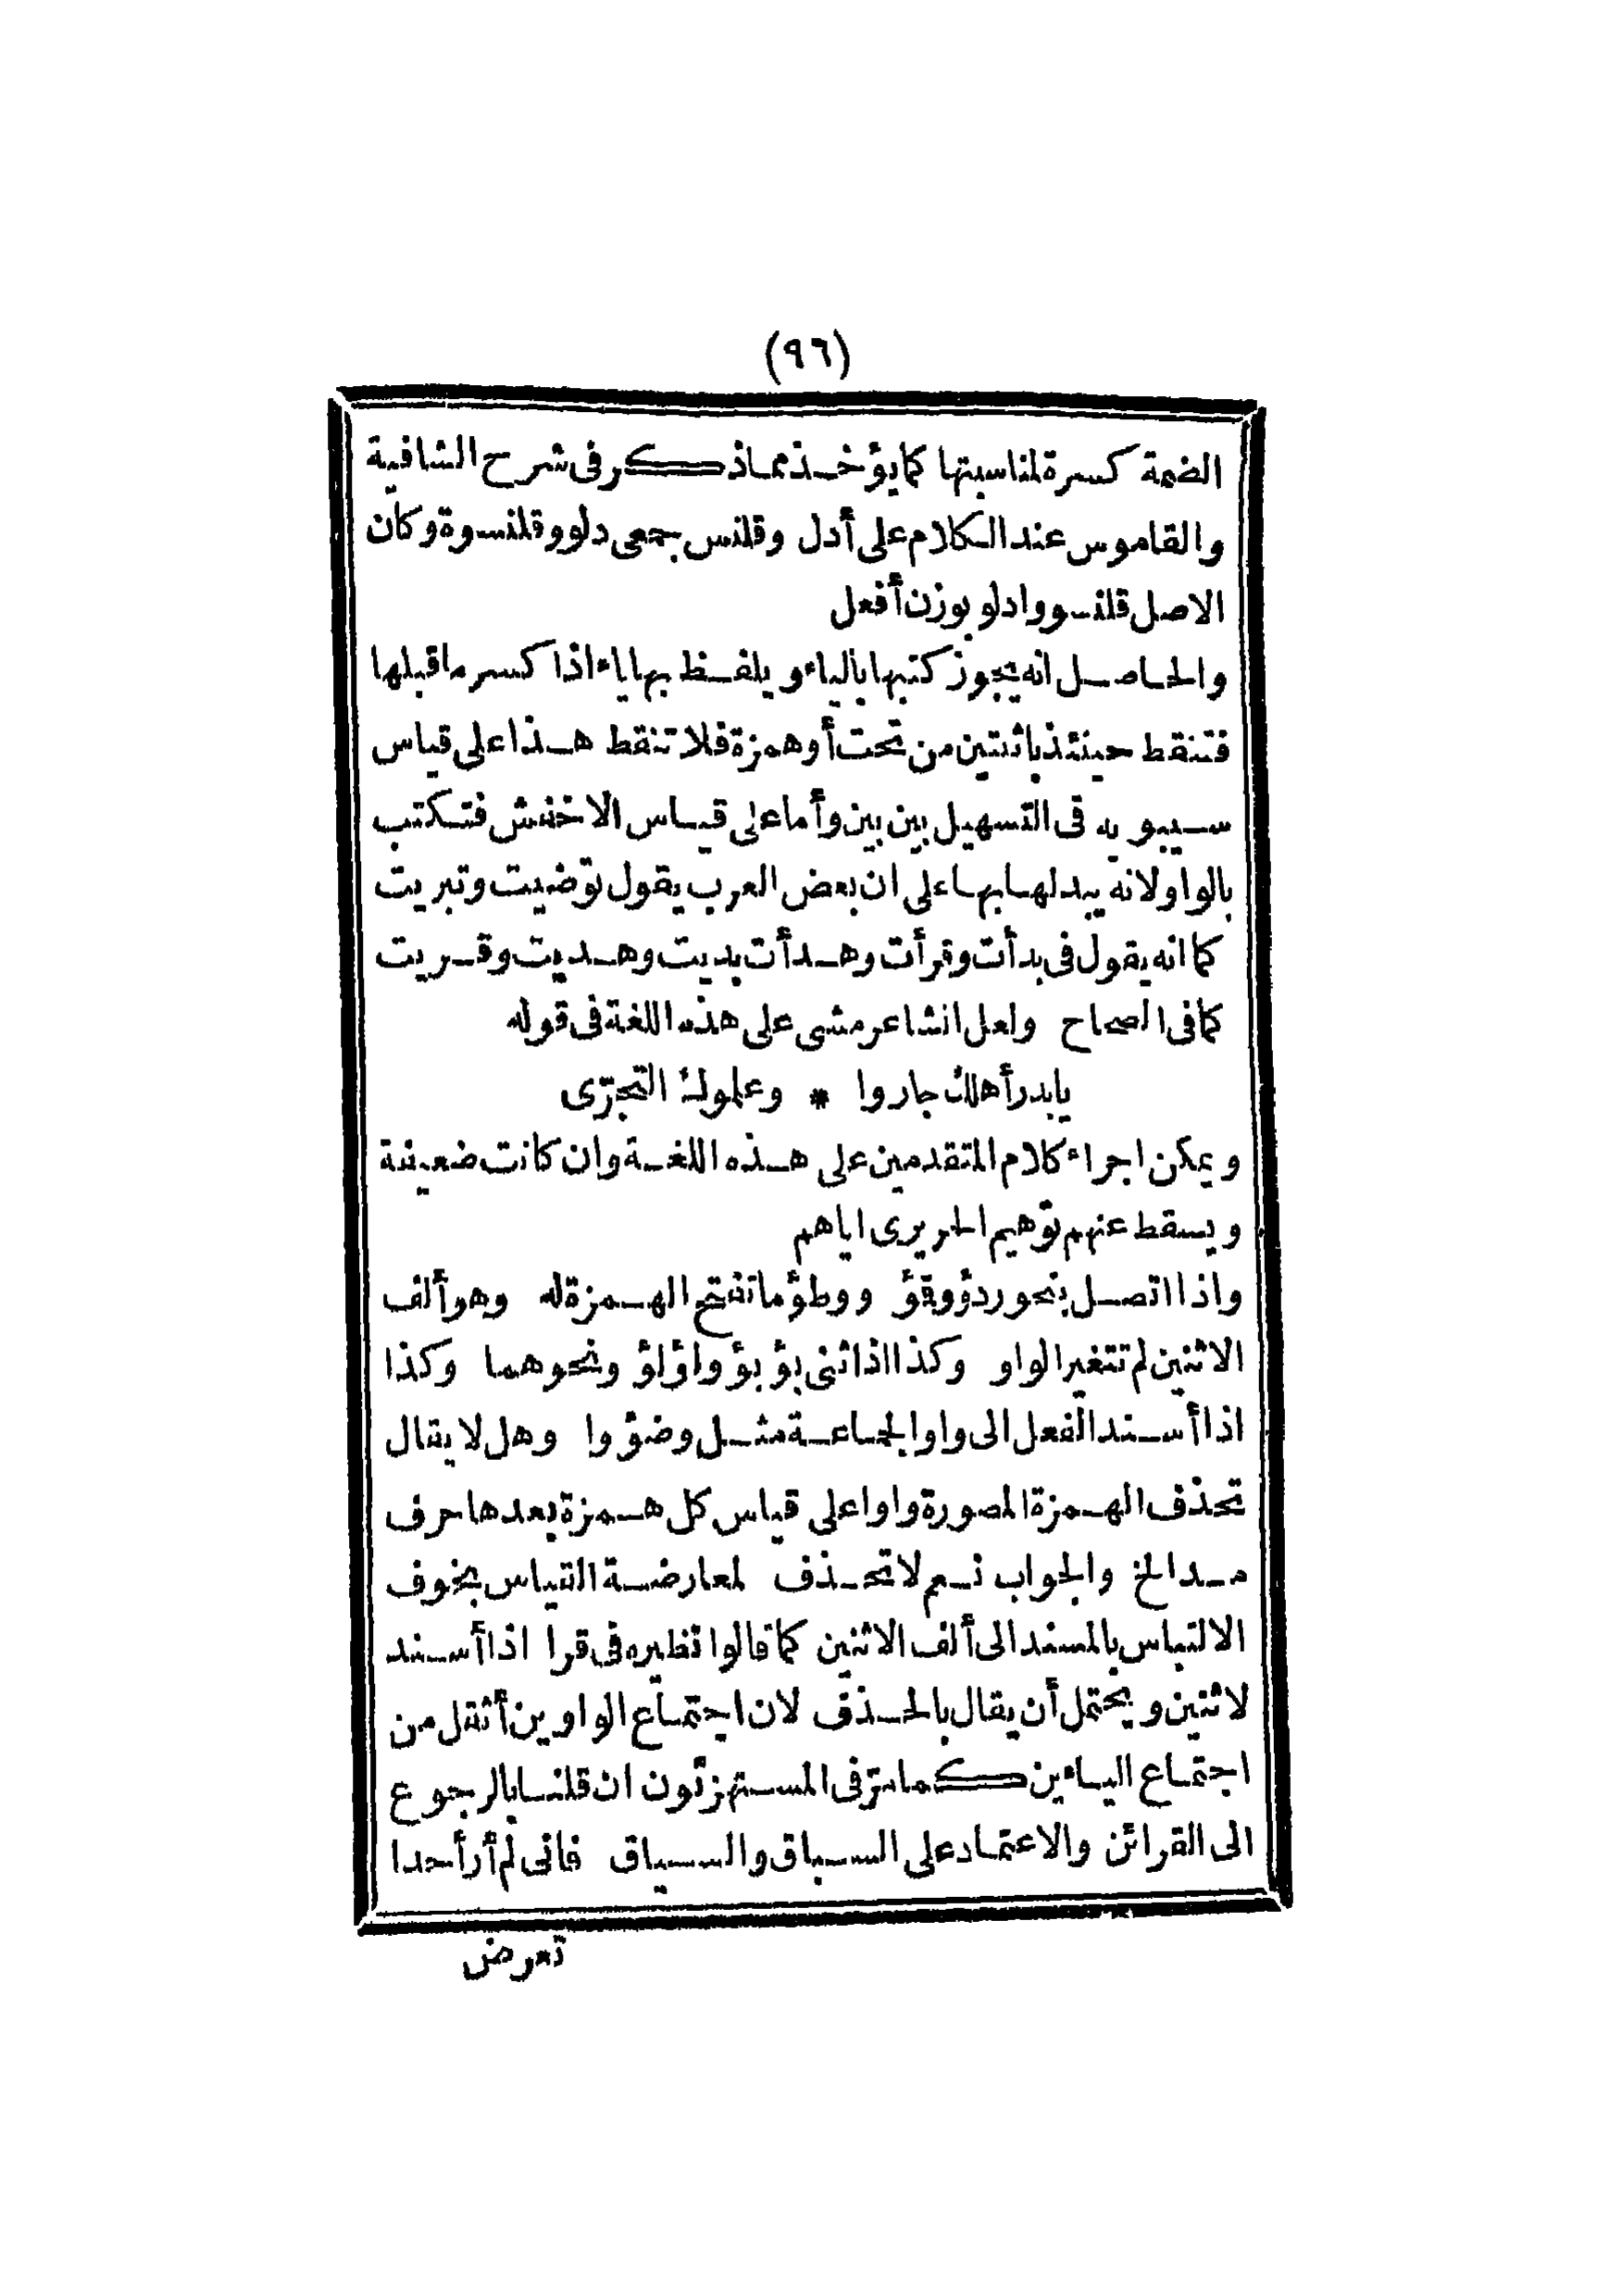 (٩٦)
الضمة كسرة لمناسبتها كما يؤخذ مما ذكر فى شرح الشافية
والقاموس عند الكلام على أدل وقلنس جمعى دلو وقلنسوة وكان
الاصل قلنسو وادلو بوزن أفعل
والحاصل انه يجوز كتبها بالياء ويلفظ بها ياء اذا كسر ما قبلها
فتنقط حينئذ باثنتين من تحت أو همزة فلا تنقط هذا على قياس
سيبويه فى التسهيل بين بين وأما على قياس الاخفش فتكتب
بالواو لانه يبدلها بها على ان بعض العرب يقول توضيت وتبريت
كما انه يقول فى بدأت وقرأت وهدأت بديت وهديت وقريت
كما فى الصحاح ولعل الشاعر مشى على هذه اللغة فى قوله
يا بدر أهلك جاروا * وعلموك التجرّى
ويمكن اجراء كلام المتقدمين على هذه اللغة وان كانت ضعيفة
ويسقط عنهم توهيم الحريرى اياهم
واذا اتصل بنحو ردؤ وقؤ ووطؤ ما تفتح الهمزة له وهو ألف
الاثنين لم تتغير الواو وكذا اذا ثنى بؤبؤ ولؤلؤ ونحوهما وكذا
اذا أسند الفعل الى واو الجماعة مثل وضؤوا وهل لا يقال
تحذف الهمزة المصورة واوا على قياس كل همزة بعدها حرف
مد الخ والجواب نعم لا تحذف لمعارضة القياس بخوف
الالتباس بالمسند الى ألف الاثنين كما قالوا نظيره فى قرا اذا أسند
لاثنين ويحتمل أن يقال بالحذف لان اجتماع الواوين أثقل من
اجتماع الياءين كما مرّ فى المستهزئون ان قلنا بالرجوع
الى القرائن والاعتماد على السباق والسياق فانى لم أر أحدا
تعرض